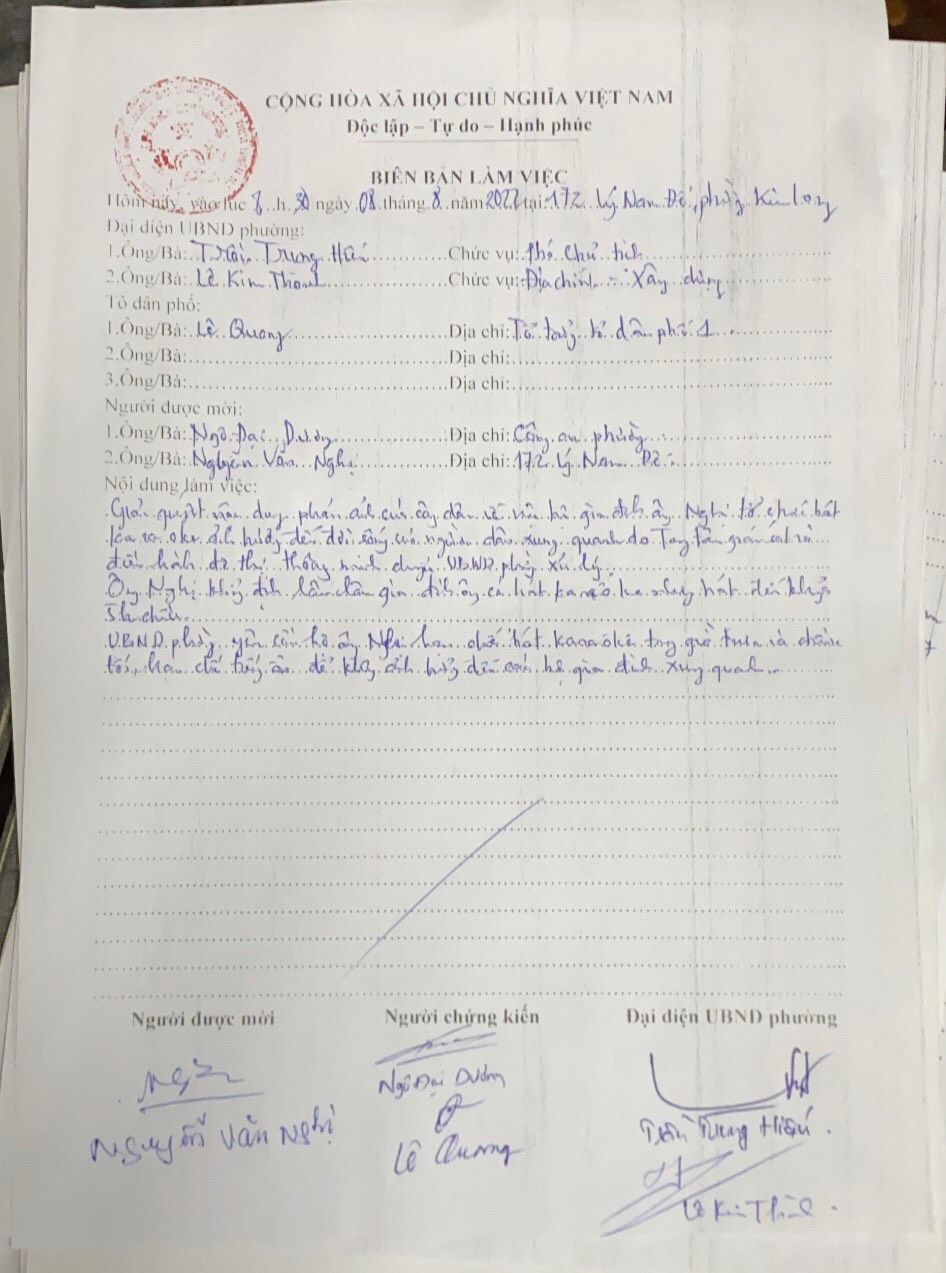 CỘNG HÒA XÃ HỘI CHỦ NGHĨA VIỆT NAM
Độc lập – Tự do – Hạnh phúc
BIÊN BẢN LÀM VIỆC
Hôm nay, vào lúc 8 h 30 ngày 08 tháng 8 năm 2022 tại: 172 Lý Nam Đế, phường Kim Long
Đại diện UBND phường:
1.Ông/Bà: Trần Trung Hiếu Chức vụ: Phó Chủ tịch
2.Ông/Bà: Lê Kim Thành Chức vụ: Địa chính - Xây dựng
Tổ dân phố:
1.Ông/Bà: Lê Quang Địa chỉ: Tổ trưởng tổ dân phố 1
2.Ông/Bà: Địa chỉ:
3.Ông/Bà: Địa chỉ:
Người được mời:
1.Ông/Bà: Ngô Đại Dương Địa chỉ: Công an phường
2.Ông/Bà: Nguyễn Văn Nghị Địa chỉ: 172 Lý Nam Đế
Nội dung làm việc:
Giải quyết nội dung phản ánh của công dân về việc hộ gia đình ông Nghị tổ chức hát
karaoke ảnh hưởng đến đời sống của người dân xung quanh do Trung tâm giám sát và
điều hành đô thị thông minh chuyển UBND phường xử lý
Ông Nghị khẳng định lâu lâu gia đình ông có hát karaoke nhưng hát đến khoảng
5h chiều.
UBND phường yêu cầu hộ ông Nghị hạn chế hát karaoke trong giờ trưa và chiều
tối, hạn chế tiếng ồn để không ảnh hưởng đến các hộ gia đình xung quanh.
Người được mời Người chứng kiến Đại diện UBND phường
Nguyễn Văn Nghị
Ngô Đại Dương
Lê Quang
Trần Trung Hiếu
Lê Kim Thành